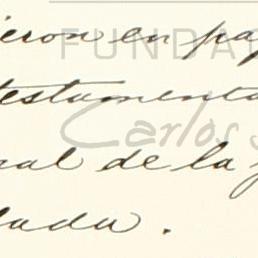 ieron en pa
testamenta
ral de la
lada.
FUNDA
Carlos